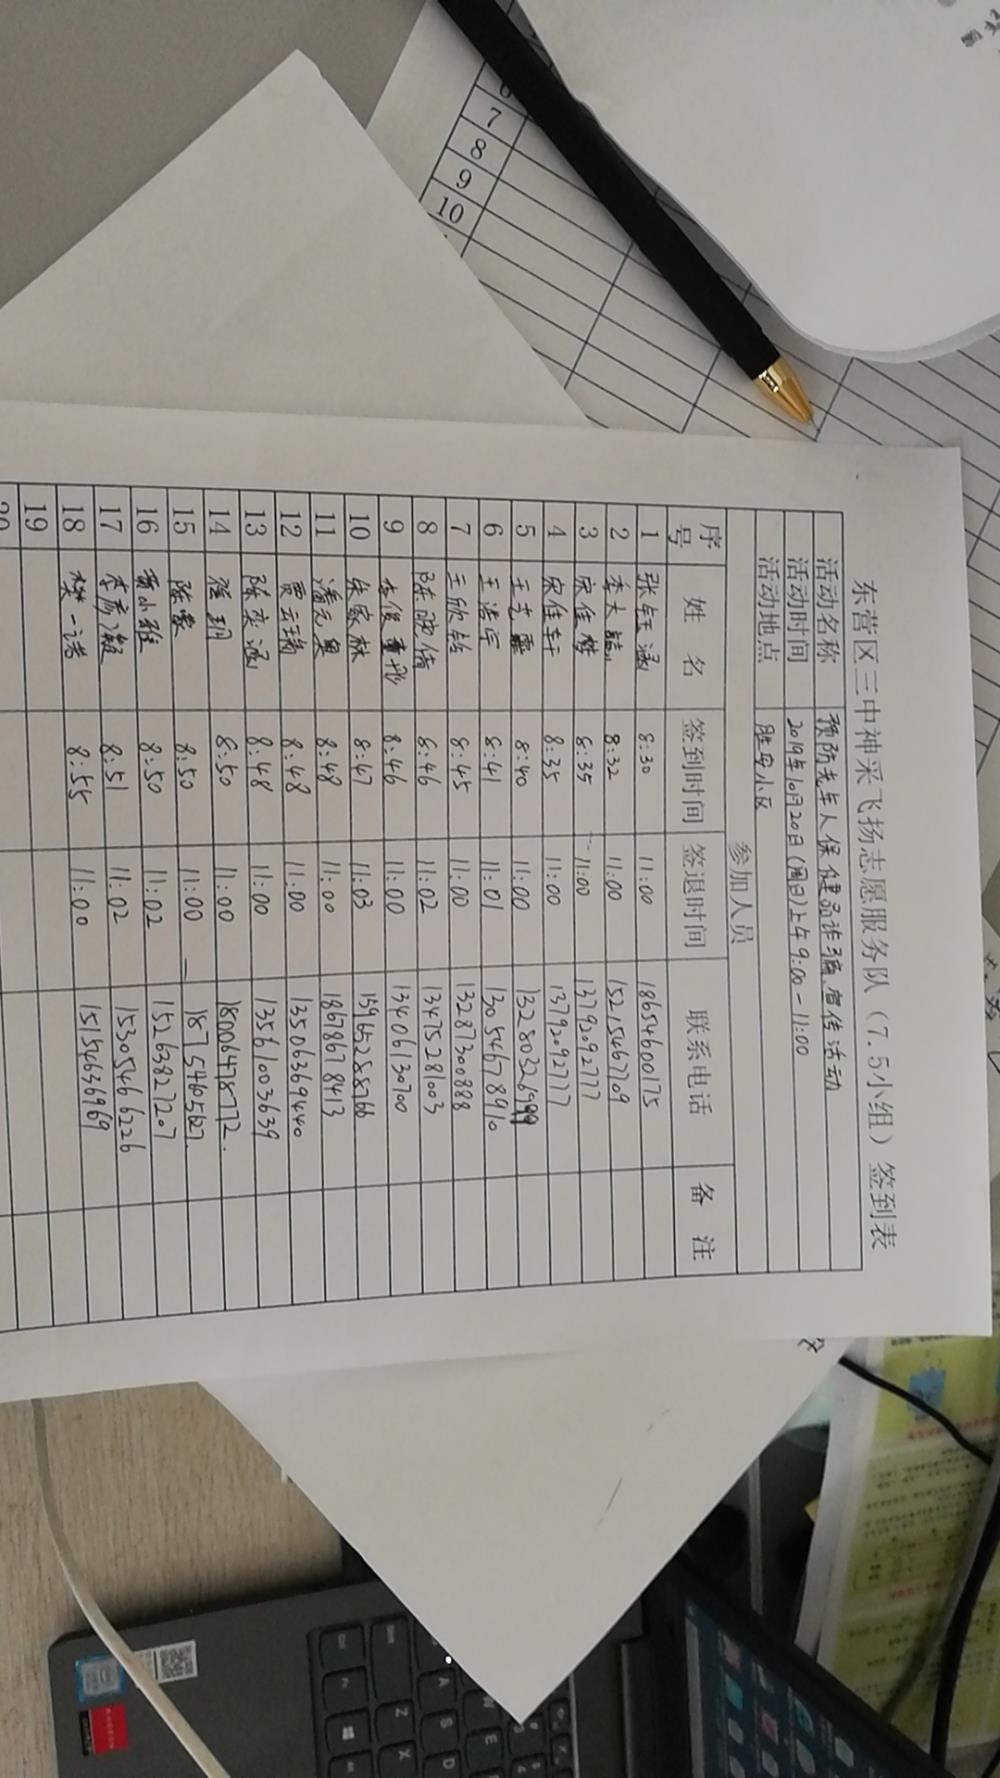 东营区三中神采飞扬志愿服务队（7.5小组）签到表
活动名称 预防老年人保健品诈骗宣传活动
活动时间 2019年10月20日(周日)上午9:00-11:00
活动地点 胜安小区
参加人员
序号 姓名 签到时间 签退时间 联系电话 备注
1 张钰涵 8:30 11:00 18654600175
2 李大 8:32 11:00 15215467109
3 宋佳 8:35 11:00 13792092777
4 宋佳轩 8:35 11:00 13792092777
5 王艺霏 8:40 11:00 13280326999
6 王浩宇 8:41 11:01 13054678910
7 王欣 8:45 11:00 13287300888
8 陈晓倩 8:46 11:02 13475281003
9 李俊 8:46 11:00 13406130700
10 朱家林 8:47 11:03 15965288766
11 潘元昊 8:48 11:00 18678678413
12 贾云瑞 8:48 11:00 13506369440
13 陈奕涵 8:48 11:00 13561003639
14 程玥 8:50 11:00 18006478772.
15 陈蒙 8:50 11:00 18754605627.
16 小雅 8:50 11:02 15263827207
17 李彦凝 8:51 11:02 15305466226
18 樊一诺 8:55 11:00 15154636969
19
20
7
8
9
10